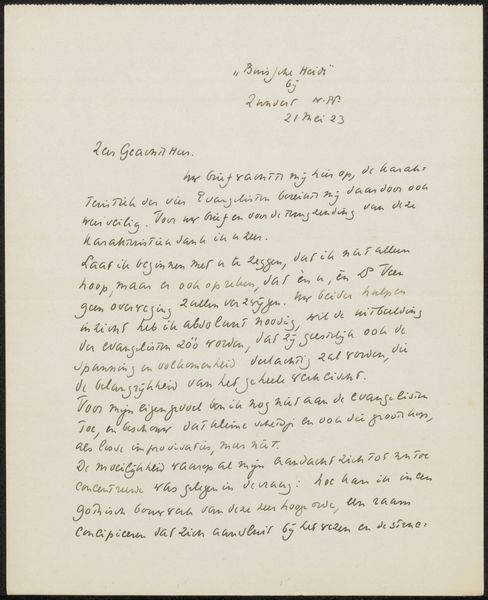 „Buissche Heide"
bij
Zundert N.-Br.
21 Mei 23
Zeer Geachte Heer.
Uw brief wachtte mij hier op, de karak-
teristiek der vier Evangelisten bereikte mij daardoor ook
weer veilig. Voor uw brief en voor de terugzending van deze
karakteristiek dank ik u zeer.
Laat ik beginnen met u te zeggen, dat ik niet alleen
hoop, maar er ook op reken, dat èn u, èn Ds Veen
geen overweging zullen verzwijgen. Uw beider hulp en
inzicht heb ik absoluut noodig, wil de uitbeelding
der evangelisten zóó worden, dat zij geestelijk ook de
spanning en volkomenheid deelachtig zal worden, die
de belangrijkheid van het geheele werk eischt.
Voor mijn eigen gevoel ben ik nog niet aan de evangelisten
toe, en beschouw dat kleine schetsje en ook die groote kop,
als losse improvisaties, meer niet.
De moeilijkheid waarop al mijn aandacht zich tot nu toe
concentreerde was gelegen in de vraag: hoe kan ik in een
gothisch bouwwerk van deze zeer hooge orde, een raam
concipieeren dat zich aansluit bij het wezen en de